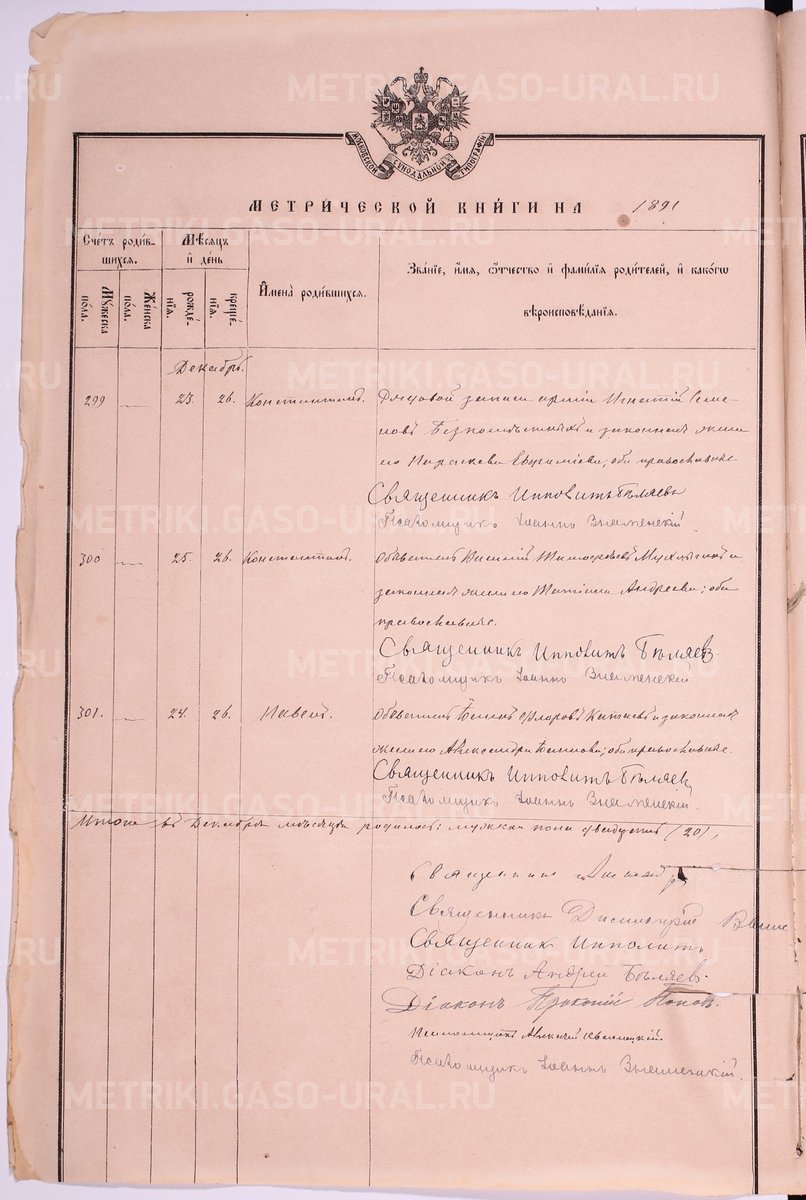 METRIKI.GASO-URAL.RU
МОСКОВСКОЙ СѴНОДАЛЬНОЙ ТИПОГРАФІИ
МЕТРИ́ЧЕСКОЙ КНИ́ГИ НА 1891
Сче́тъ роди́в-
шихся.
Мꙋ́жеска
по́ла.
Же́нска
по́ла.
Мѣ́сяцъ
и҆ де́нь
рожде́-
нїѧ.
креще́-
нїѧ.
И҆мена̀ роди́вшихся.
Зва́нїе, и҆́мѧ, ѻ҆́тчество и҆ фами́лїѧ роди́телей, и҆ како́гѡ
вѣроисповѣ́данїѧ.
Декабрь.
299 — 23. 26. Константинъ. Рядовой запаса арміи Игнатій Семе-
новъ и законная жена
его Параскева Евфиміева; оба православные.
Священникъ Ипполитъ Бѣляевъ
Псаломщикъ Іоаннъ Знаменскій
300 — 25. 26. Константинъ. Василій Тимофеевъ и
законная жена его Татіана Андреева; оба
православные.
Священникъ Ипполитъ Бѣляевъ
Псаломщикъ Іоаннъ Знаменскій
301. — 24. 26. Павелъ. Флоровъ и законная
жена его Александра; оба православные.
Священникъ Ипполитъ Бѣляевъ
Псаломщикъ Іоаннъ Знаменскій.
Итого въ Декабрѣ мѣсяцѣ родилось: мужска пола двадцать (20),
Священникъ
Священникъ Димитрій
Священникъ Ипполитъ
Діаконъ Андрей Бѣляевъ.
Діаконъ Прокопій Поповъ.
Псаломщикъ Алексій
Псаломщикъ Іоаннъ Знаменскій.